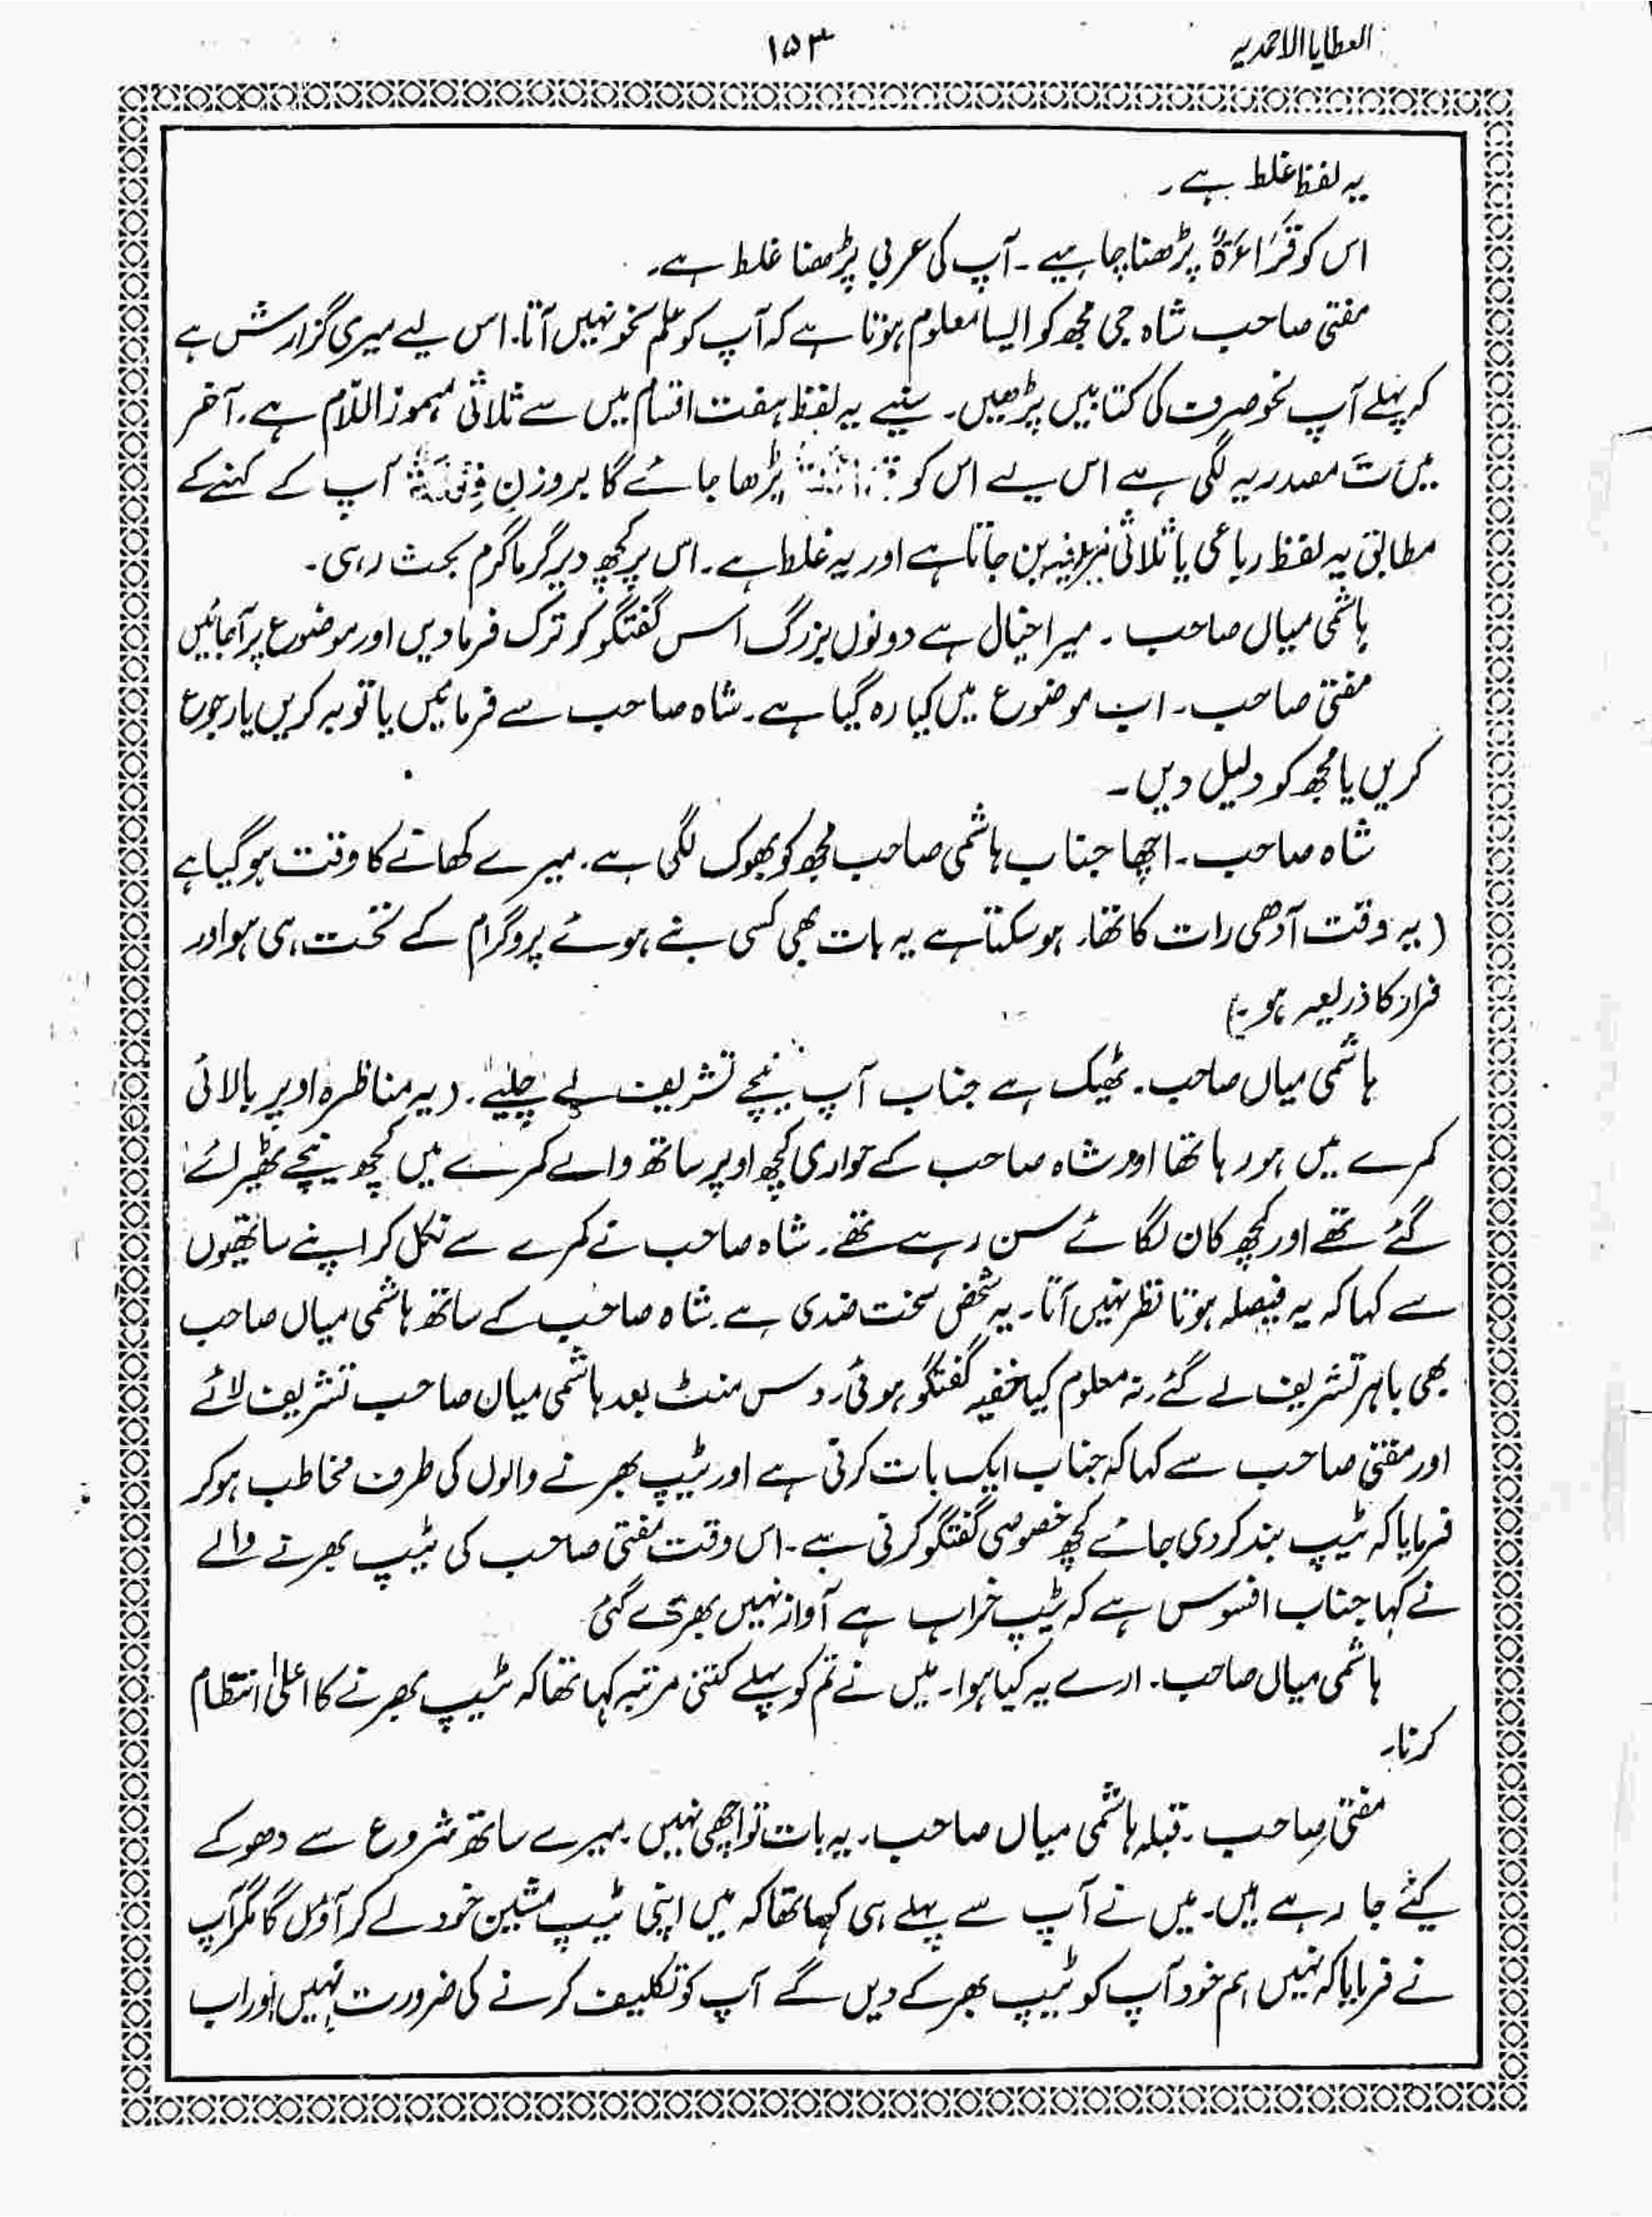 العطایا الاحمدیہ
۱۵۳
یہ لفظ غلط ہے۔
اس کو قَرَاءَۃً پڑھنا چاہیے۔ آپ کی عربی پڑھنا غلط ہے۔
مفتی صاحب شاہ جی مجھ کو ایسا معلوم ہوتا ہے کہ آپ کو علم نحو نہیں آتا۔ اس لیے میری گزارش ہے
کہ پہلے آپ نحو صرف کی کتابیں پڑھیں۔ سنیے یہ لفظ ہفت اقسام میں سے ثلاثی مہموز اللّام ہے۔ آخر
میں تَ مصدریہ لگی ہے اس لیے اس کو پڑھا جائے گا بروزنِ آپ کے کہنے کے
مطابق یہ لفظ رباعی یا ثلاثی بن جاتا ہے اور یہ غلط ہے۔ اس پر کچھ دیر گرما گرم بحث رہی۔
ہاشمی میاں صاحب ۔ میرا خیال ہے دونوں بزرگ اس گفتگو کو ترک فرما دیں اور موضوع پر آجائیں
مفتی صاحب۔ اب موضوع میں کیا رہ گیا ہے۔ شاہ صاحب سے فرمائیں یا توبہ کریں یا رجوع
کریں یا مجھ کو دلیل دیں۔
شاہ صاحب۔ اچھا جناب ہاشمی صاحب مجھ کو بھوک لگی ہے۔ میرے کھانے کا وقت ہو گیا ہے
(یہ وقت آدھی رات کا تھا۔ ہو سکتا ہے یہ بات بھی کسی بنے ہوئے پروگرام کے تحت ہی ہو اور
فرار کا ذریعہ ہو۔)
ہاشمی میاں صاحب۔ ٹھیک ہے جناب آپ نیچے تشریف لے چلیے۔ (یہ مناظرہ اوپر بالائی
کمرے میں ہو رہا تھا اور شاہ صاحب کے حواری کچھ اوپر ساتھ والے کمرے میں کچھ نیچے ٹھیرائے
گئے تھے اور کچھ کان لگائے سن رہے تھے۔ شاہ صاحب نے کمرے سے نکل کر اپنے ساتھیوں
سے کہا کہ یہ فیصلہ ہوتا نظر نہیں آتا۔ یہ شخص سخت ضدی ہے۔ شاہ صاحب کے ساتھ ہاشمی میاں صاحب
بھی باہر تشریف لے گئے۔ نہ معلوم کیا خفیہ گفتگو ہوئی۔ دس منٹ بعد ہاشمی میاں صاحب تشریف لائے
اور مفتی صاحب سے کہا کہ جناب ایک بات کرنی ہے اور ٹیپ بھرنے والوں کی طرف مخاطب ہو کر
فرمایا کہ ٹیپ بند کر دی جائے کچھ خصوصی گفتگو کرنی ہے۔ اس وقت مفتی صاحب کی ٹیپ بھرنے والے
نے کہا جناب افسوس ہے کہ ٹیپ خراب ہے آواز نہیں بھری گئی
ہاشمی میاں صاحب۔ ارے یہ کیا ہوا۔ میں نے تم کو پہلے کتنی مرتبہ کہا تھا کہ ٹیپ بھرنے کا اعلیٰ انتظام
کرنا۔
مفتی صاحب ۔ قبلہ ہاشمی میاں صاحب۔ یہ بات تو اچھی نہیں۔ میرے ساتھ شروع سے دھوکے
کیئے جا رہے ہیں۔ میں نے آپ سے پہلے ہی کہا تھا کہ میں اپنی ٹیپ مشین خود لے کر آؤں گا مگر آپ
نے فرمایا کہ نہیں ہم خود آپ کو ٹیپ بھر کے دیں گے آپ کو تکلیف کرنے کی ضرورت نہیں اور اب